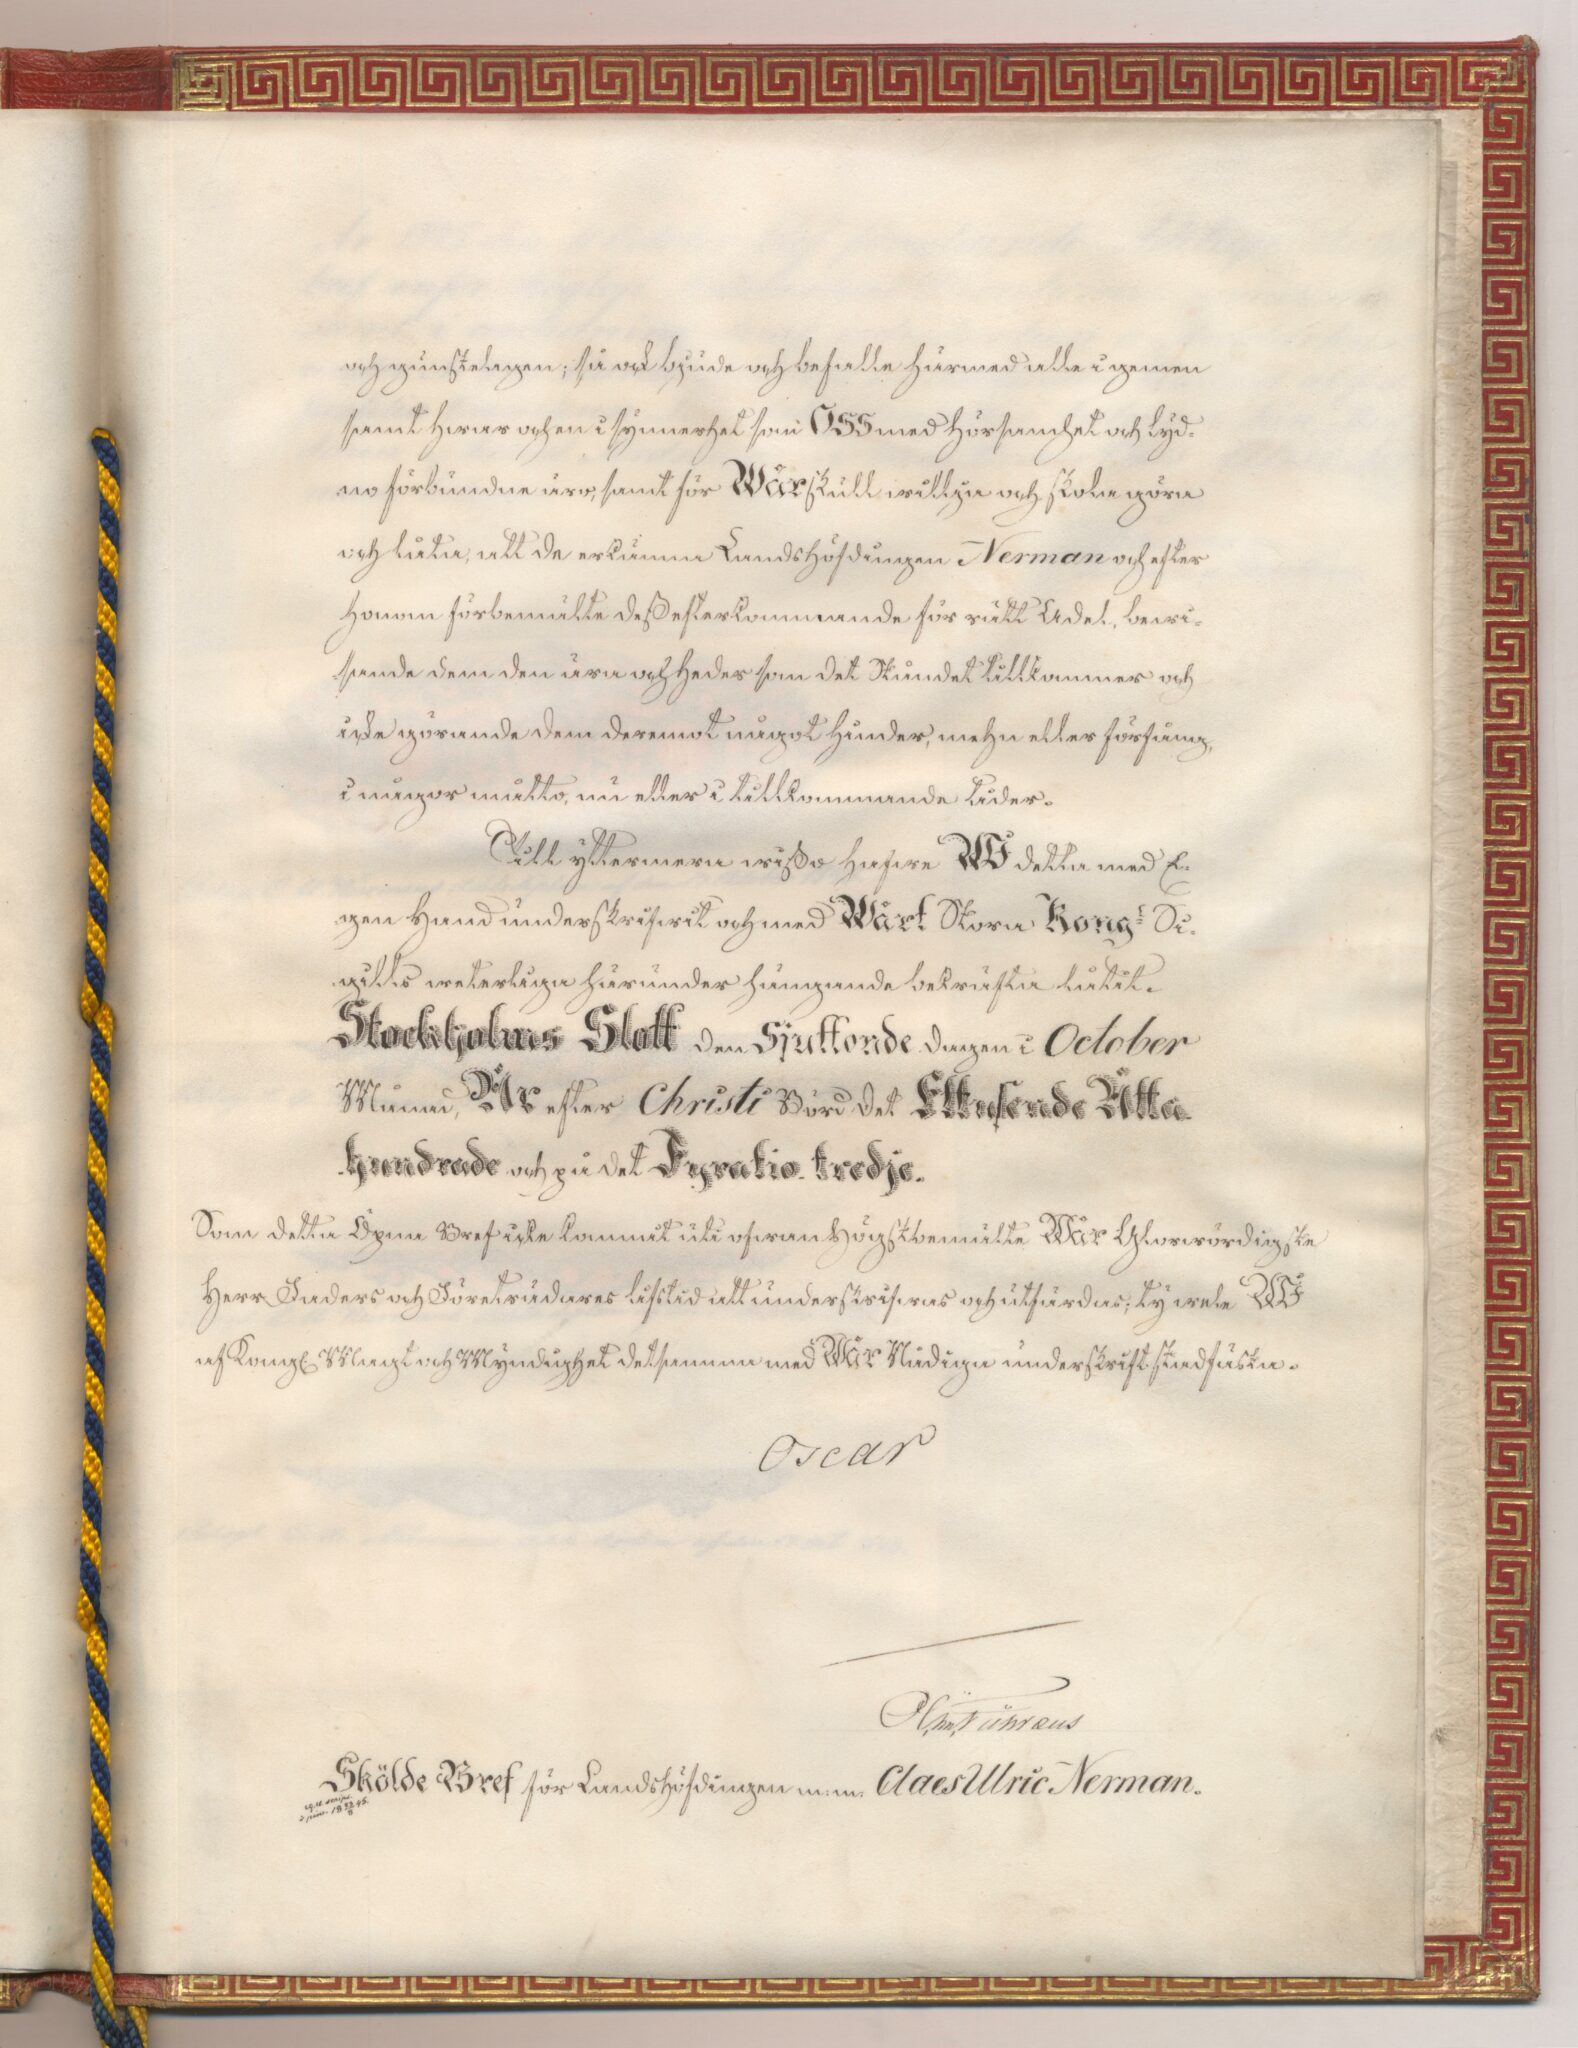 och gunstelagen; så ock bjude och befalle härmed alla i gemen
samt hwar och en i synnerhet som OSS med hörsamhet och lyd-
no förbundne äro, samt för Wår skull willja och skola göra
och låta, att de erkänna Landshöfdingen Nerman och efter
honom förbemälte desß efterkommande för rätt Adel, bewi-
sande dem den ära och heder som det Ståndet tillkommer och
icke görande dem deremot något hinder, mehn eller förfång,
i någor måtto, nu eller i tillkommande tider.
Till yttermera wißo hafwe WI detta med E-
gen Hand underskrifwit och med Wårt Stora Kongl. Si-
gills weterliga härunder hängande bekräfta låtit.
Stockholms Slott den Sjuttonde dagen i October
Månad, År efter Christi Börd det Ettusende Åtta
hundrade och på det Fyratio tredje.
Som detta Öpna Bref icke kommit uti ofwan Högstbemälte Wår Glorwördigste
Herr Faders och Företrädares lifstid att underskrifwas och utfärdas; ty wele WI
af Kongl. Magt och Myndighet detsamma med Wår Nådiga underskrift stadfästa.
Oscar
Skölde Bref för Landshöfdingen m: m: Claes Ulric Nerman.